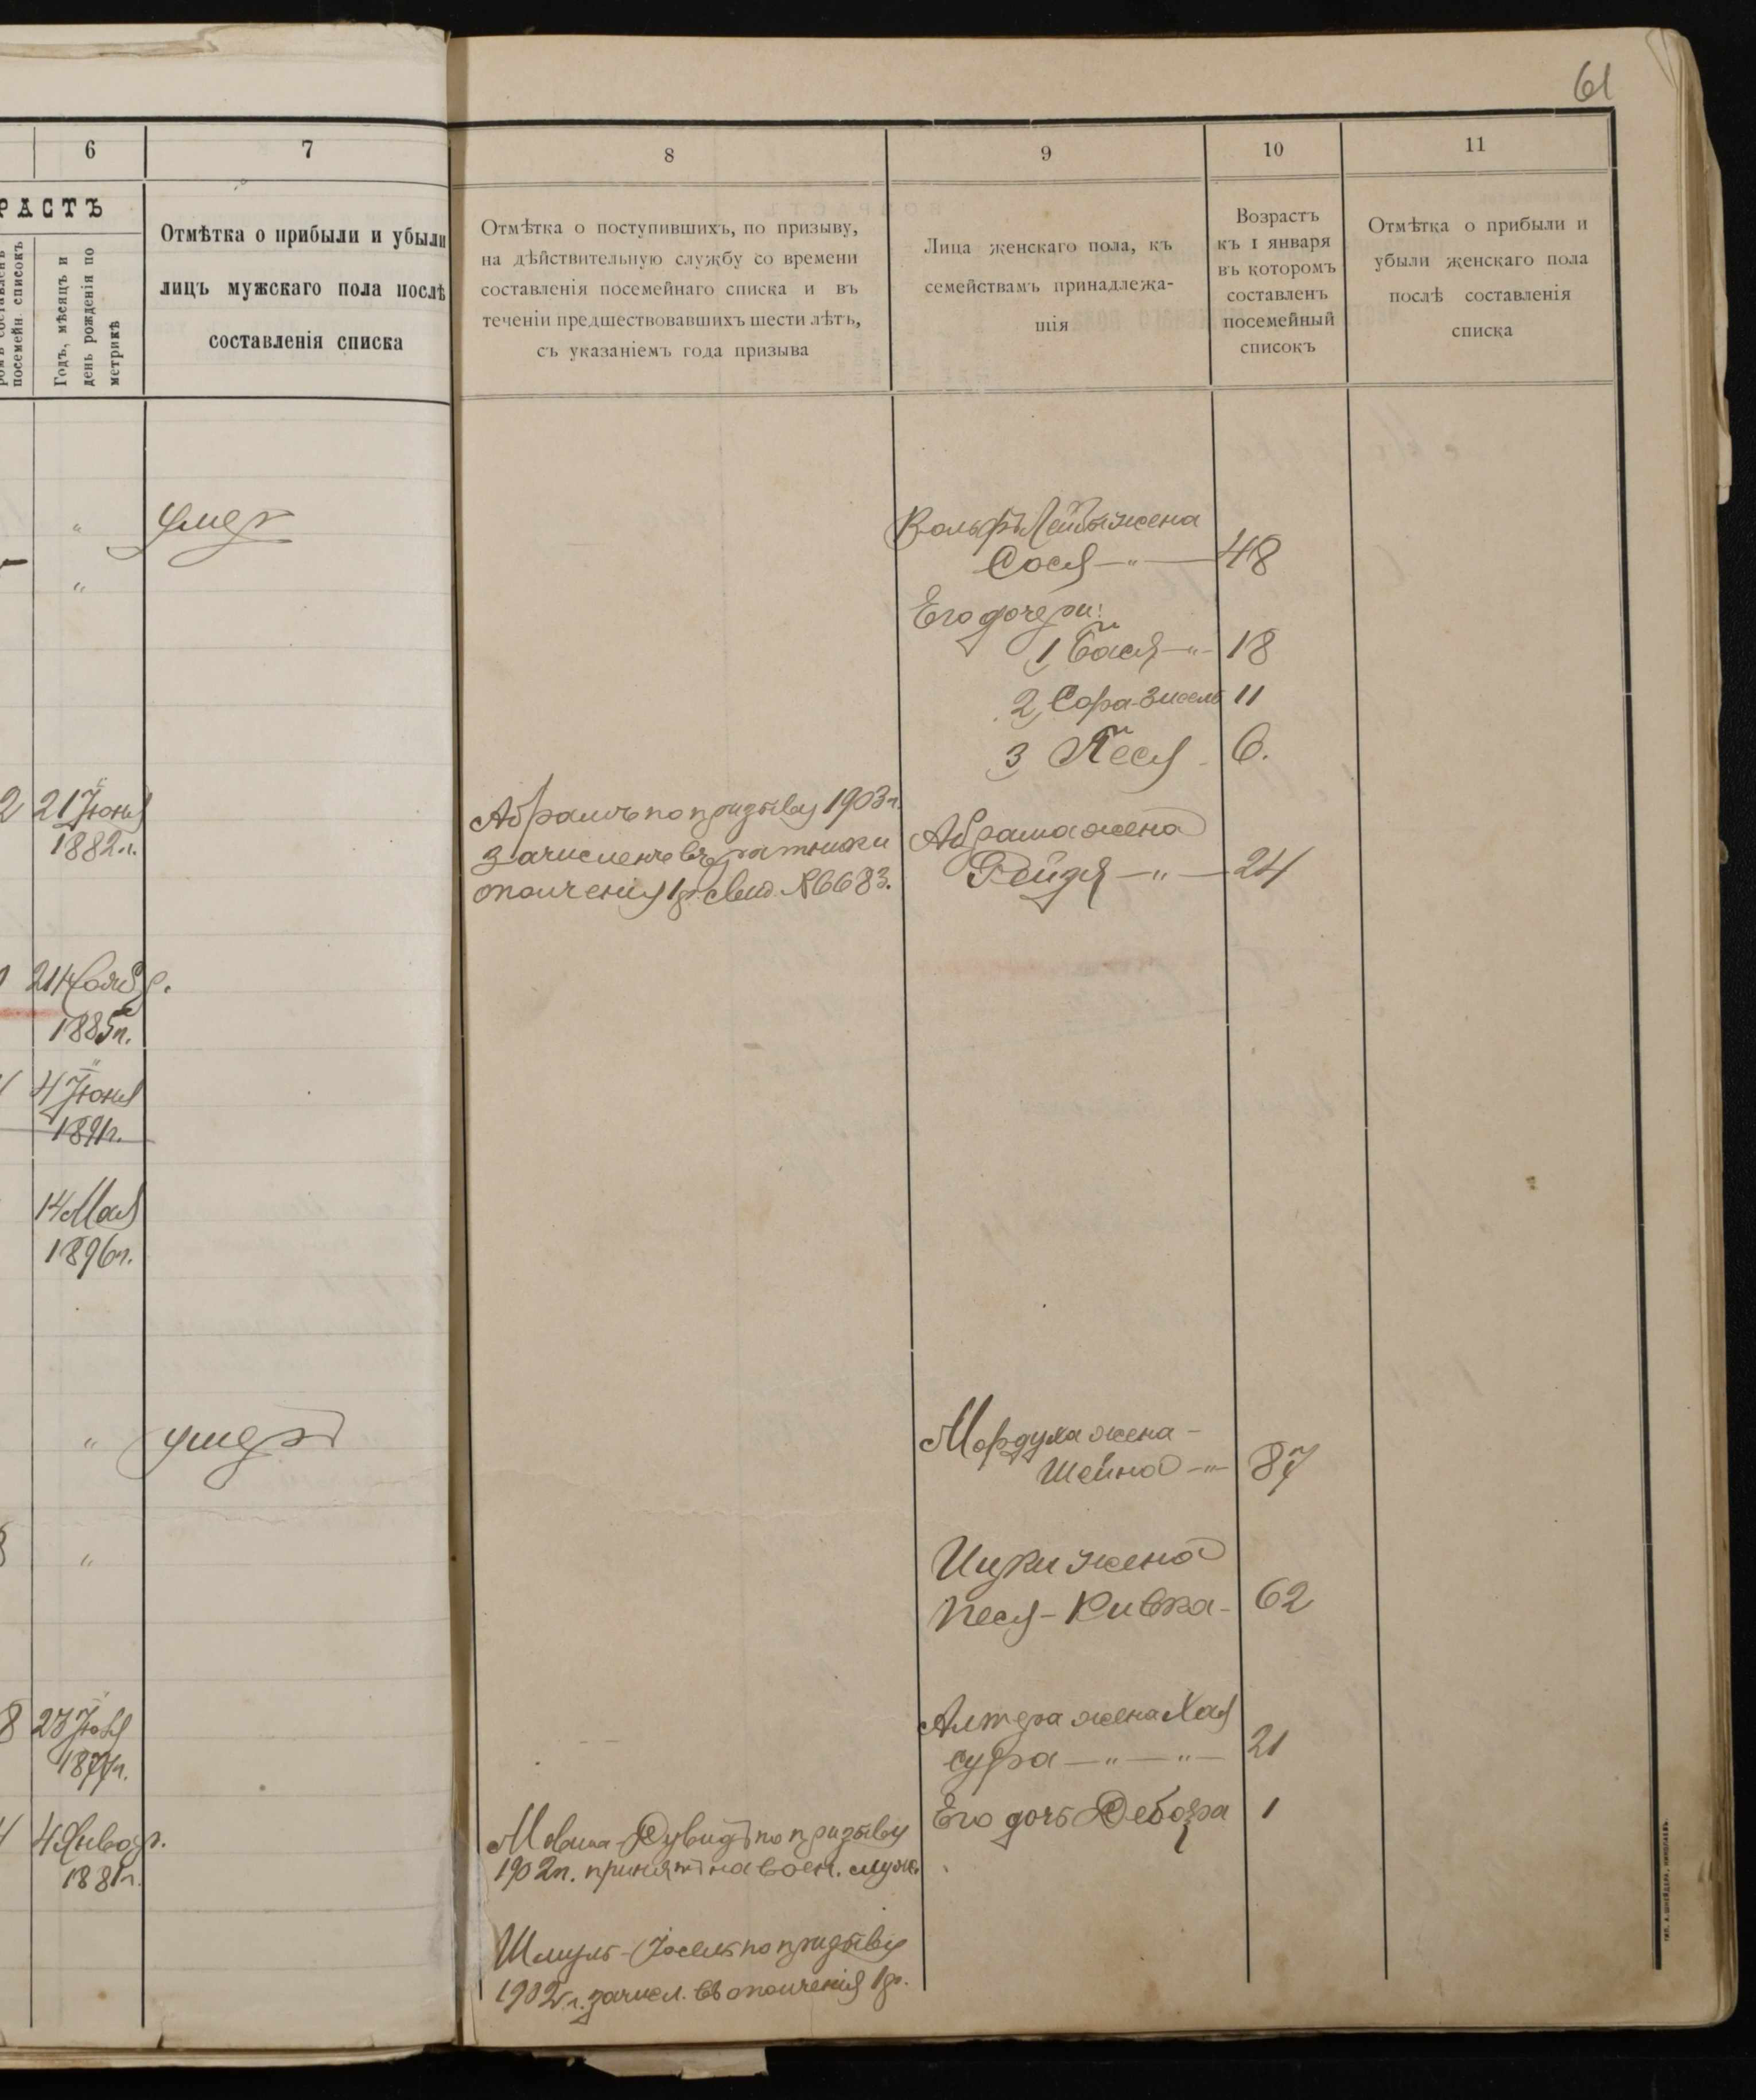 61
6
7
8
9
10
11
РАСТЪ
посемейн. списокъ
Годъ, мѣсяцъ и
день рожденія по
метрикѣ
Отмѣтка о прибыли и убыли
лицъ мужскаго пола послѣ
составленія списка
Отмѣтка о поступившихъ, по призыву,
на дѣйствительную службу со времени
составленія посемейнаго списка и въ
теченіи предшествовавшихъ шести лѣтъ,
съ указаніемъ года призыва
Лица женскаго пола, къ
семействамъ принадлежа-
щія
Возрастъ
къ 1 января
въ которомъ
составленъ
посемейный
списокъ
Отмѣтка о прибыли и
убыли женскаго пола
послѣ составленія
списка
" умер
"
Вольфъ жена
Сося — " — 48
Его дочери:
1, Бася — " — 18
2, Сора-Зисель 11
3, Песя - 6.
2 21 Іюня
1882 г.
Абрамъ по призыву 1903 г.
зачисленъ въ ратники
ополченія 1 р. свид. №6683.
Абрама жена
Рейзя — " — 24
21 Ноябр.
1885 г.
4 Іюня
1891 г.
14 Мая
1896 г.
" умеръ
Мордуха жена -
Шейна — " — 87
"
Ицки жена
Песя - Ривка - 62
8 27 Іюля
1877 г.
Алтера жена Хая
сура — " — " — 21
Его дочь Дебора 1
4 Январ.
1881 г.
Мовша-Дувидъ по призыву
1902 г. принятъ на воен. служ.
Шмуль-Іосель по призыву
1902 г. зачисл. въ ополченія 1 р.